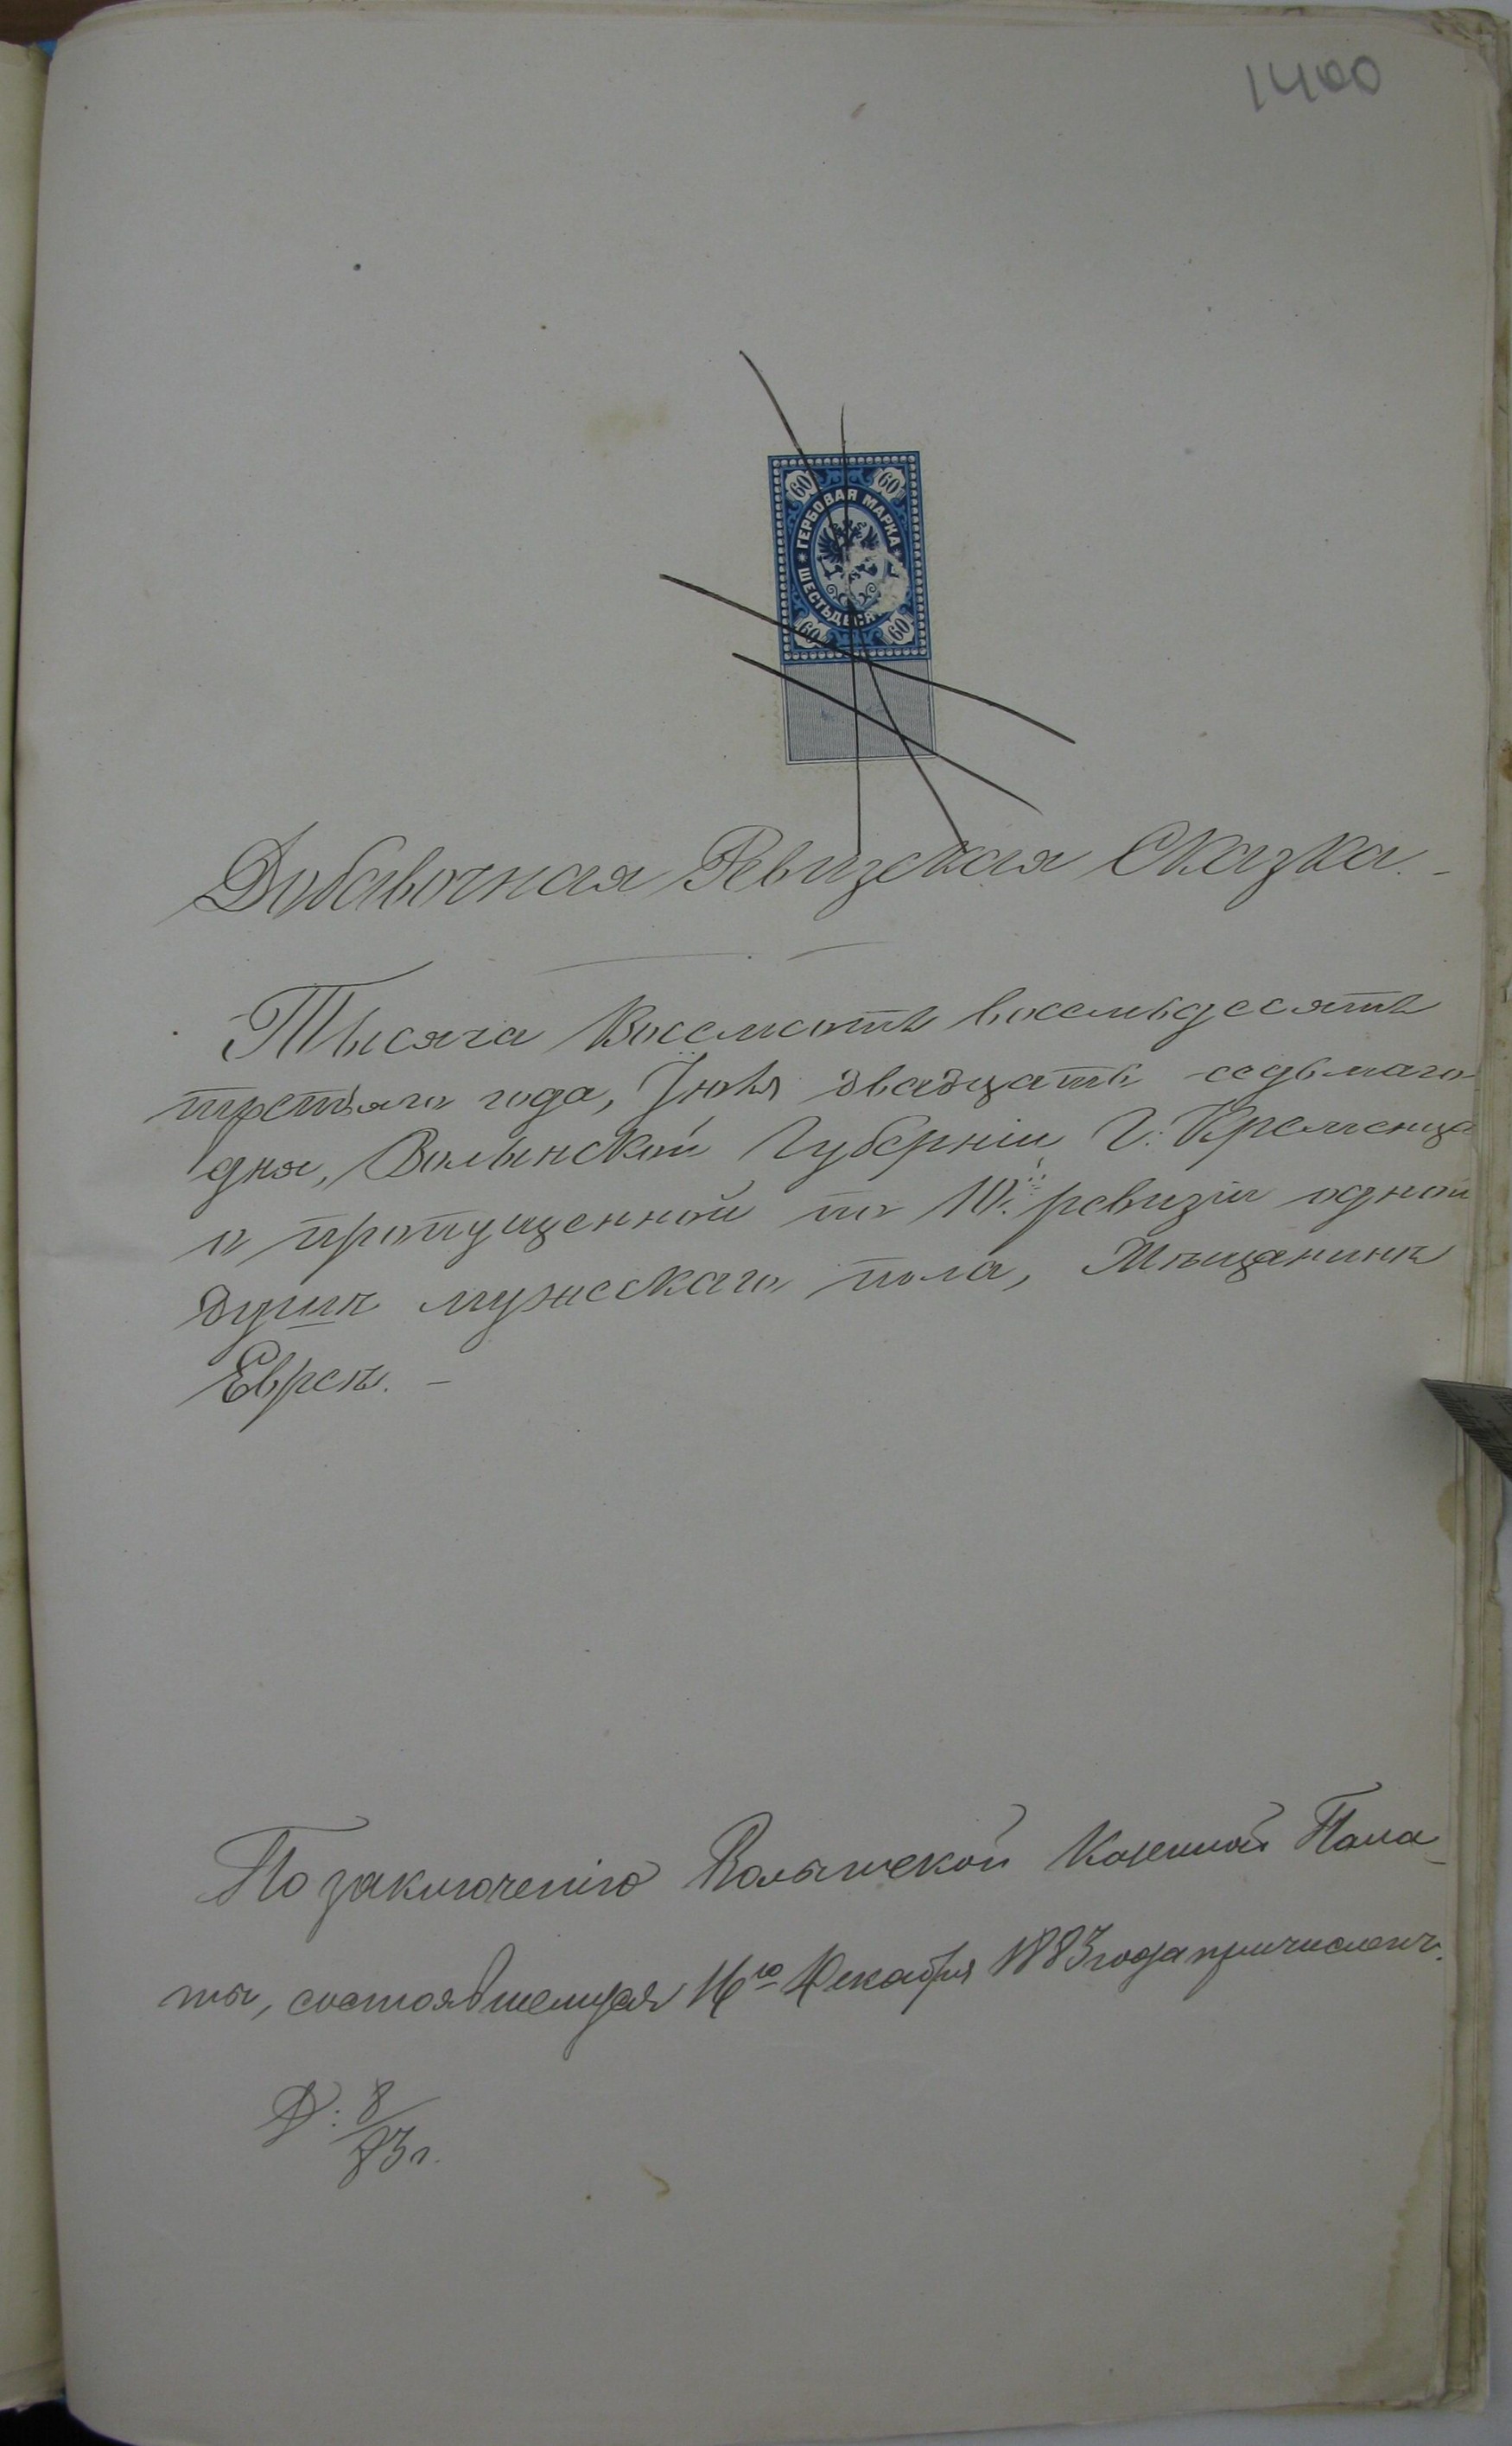 1400
60 60
ГЕРБОВАЯ МАРКА
ШЕСТЬДЕСЯ
60 60
Добавочная Ревизская Сказка.-
Тысяча Восемсотъ восемьдесятъ
третьяго года, Іюля двадцать седьмаго
дня, Волынской Губерніи Г. Кременца
о пропущенной по 10й ревизіи одной
души мужескаго пола, Мѣщанинѣ
Евреѣ.-
По заключенію Волынской Казенной Пала-
ты, состоявшемуся 16го Декабря 1883 года причисленъ.
Д: 8/83 г.